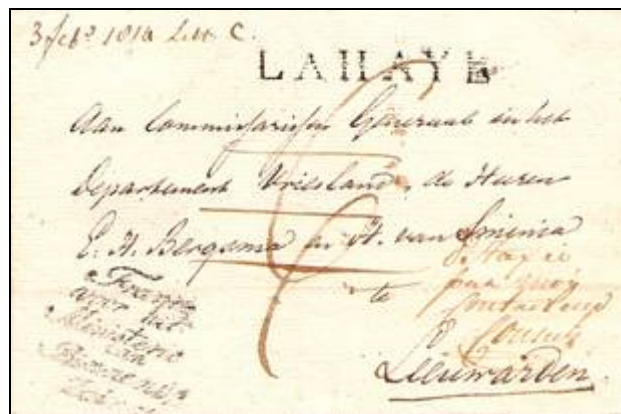 3 febr 1814 Litt. C.
LAHAYE
Aan Commissarissen Generaal in het
Departement Vriesland, de Heeren
E. H. Bergsma en H. van Sminia
te
Leeuwarden.
Franco
voor het
Ministerie
van